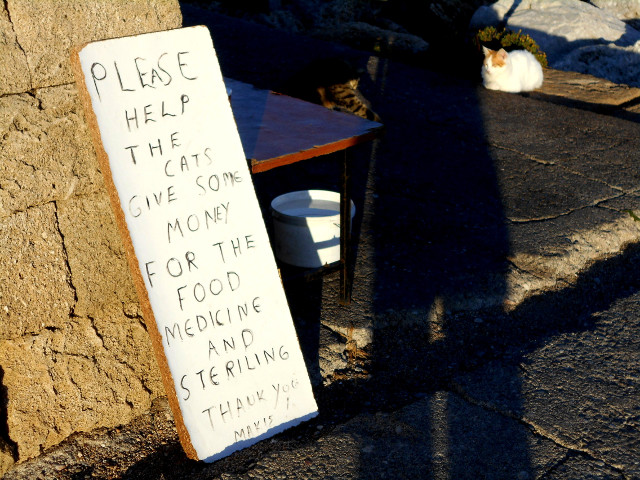 PLEASE
HELP
THE
CATS
GIVE SOME
MONEY
FOR THE
FOOD
MEDICINE
AND
STERILING
THANK YOU